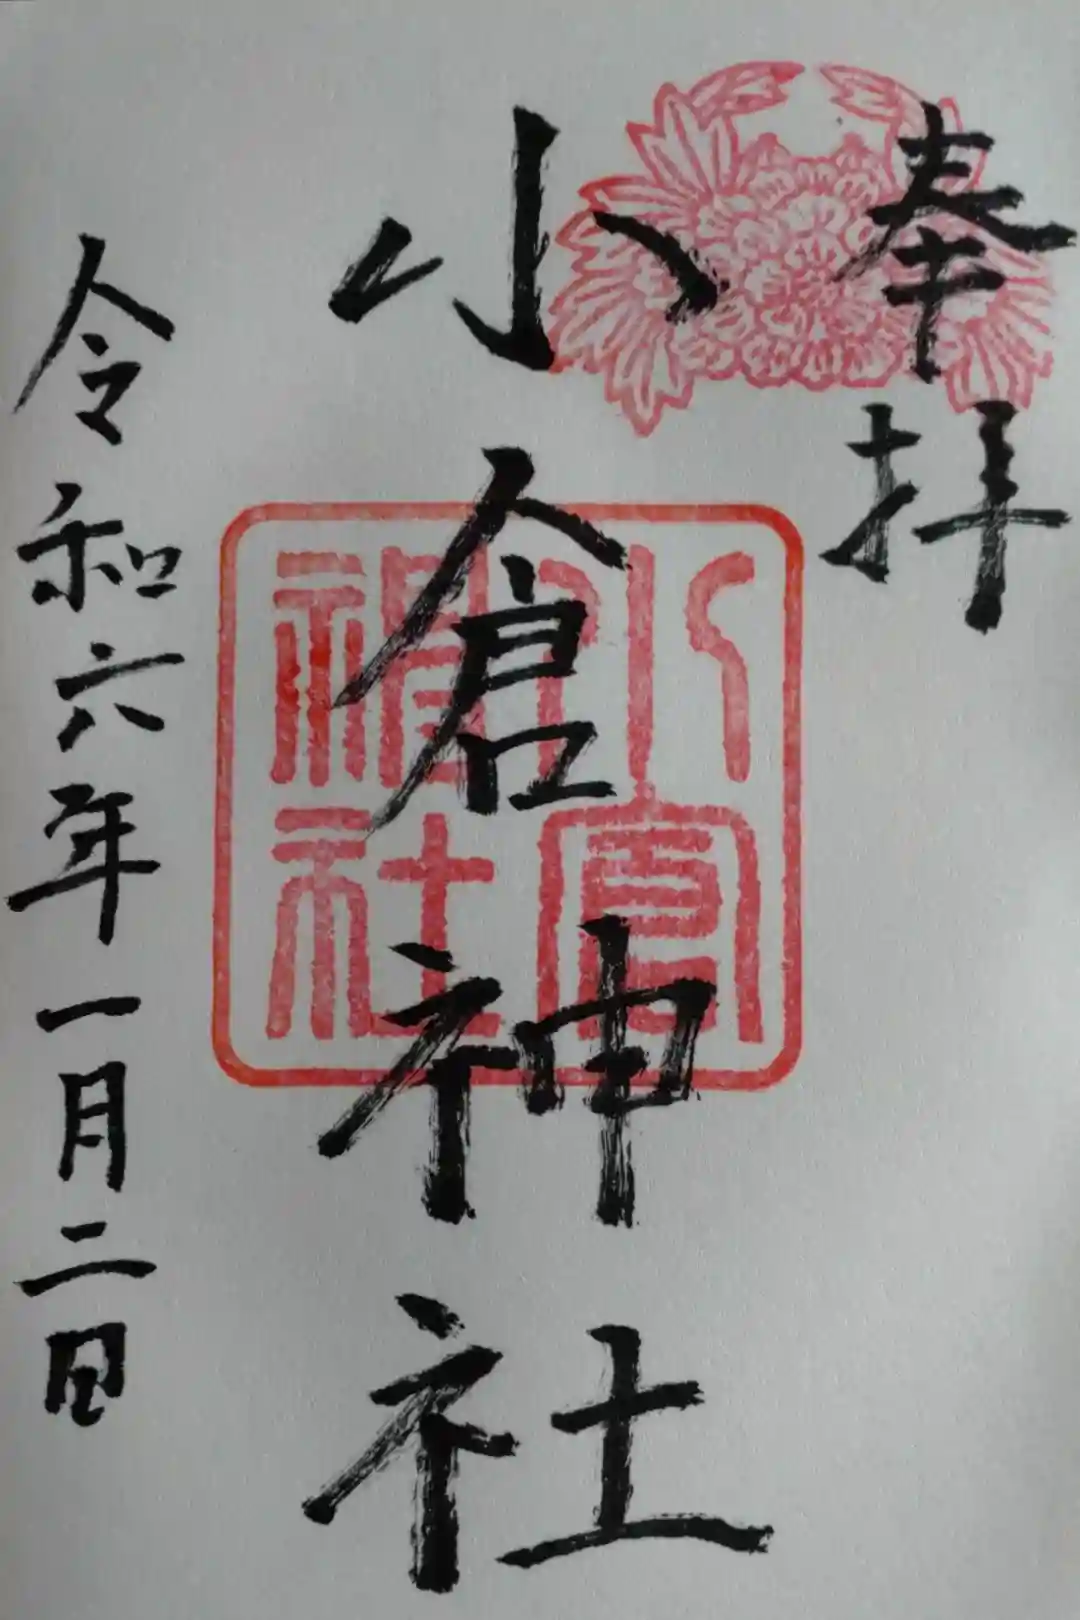 奉拝
小倉神社
小倉神社
令和六年一月二日